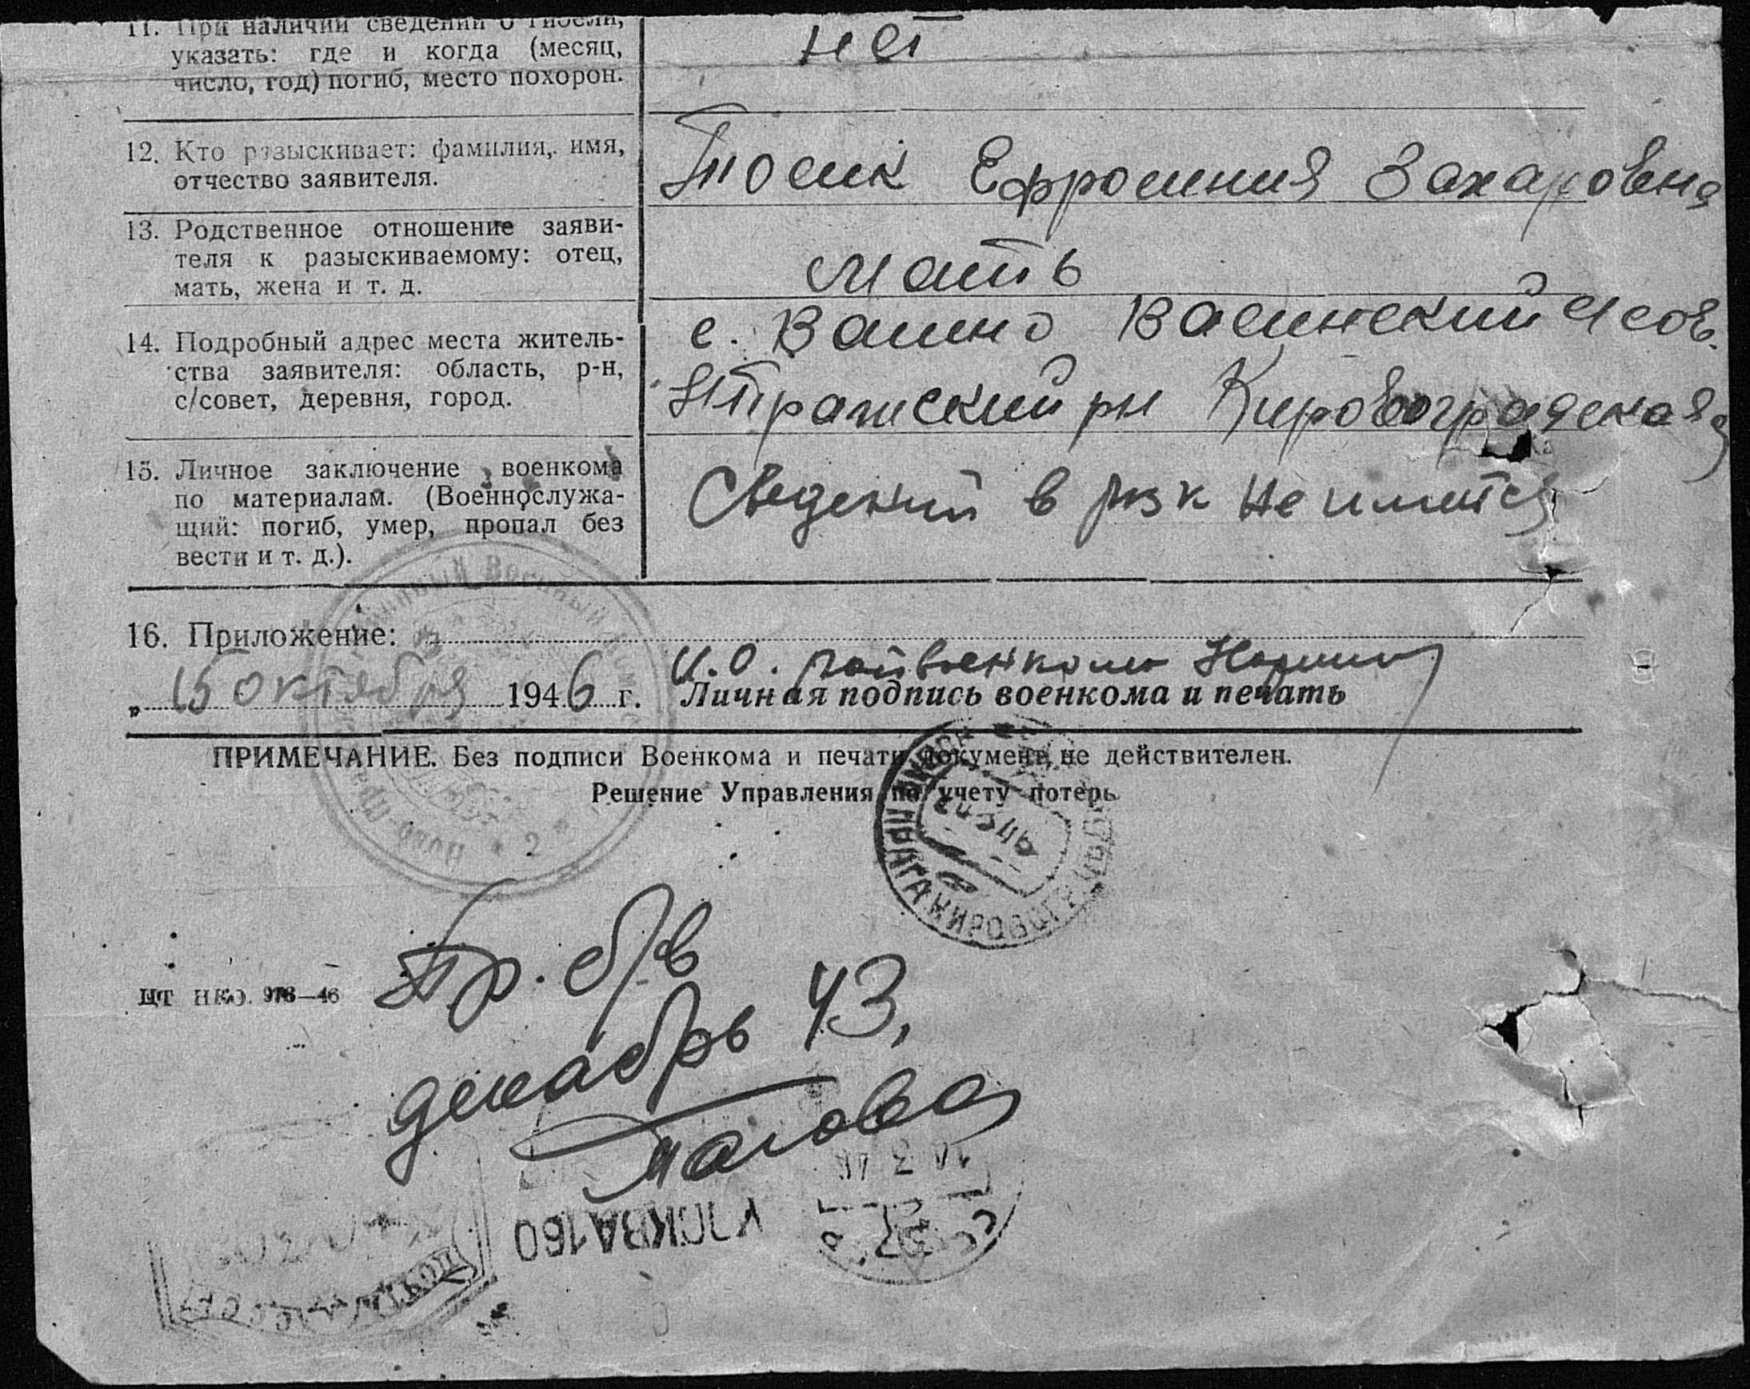 11. При наличии сведений о гибели, указать: где и когда (месяц, число, год) погиб, место похорон.
нет
12. Кто разыскивает: фамилия, имя,
отчество заявителя.
Тосик Ефросиния Захаровна
13. Родственное отношение заяви-
теля к разыскиваемому: отец,
мать, жена и т. д.
мать
14. Подробный адрес места житель-
ства заявителя: область, р-н,
с/совет, деревня, город.
с. Васино Васинский
Кировоградская
15. Личное заключение военкома
по материалам. (Военнослужа-
щий: погиб, умер, пропал без
вести и т. д.).
Сведений в рвк не имется
16. Приложение:
И. О. райвоенкома
„ 15 октября 1946 г. Личная подпись военкома и печать
ПРИМЕЧАНИЕ. Без подписи Военкома и печати документ не действителен.
Решение Управления по учету потерь
Пр. б/в
декабрь 43,
ЦТ НКО. 976—46
МОСКВА 160